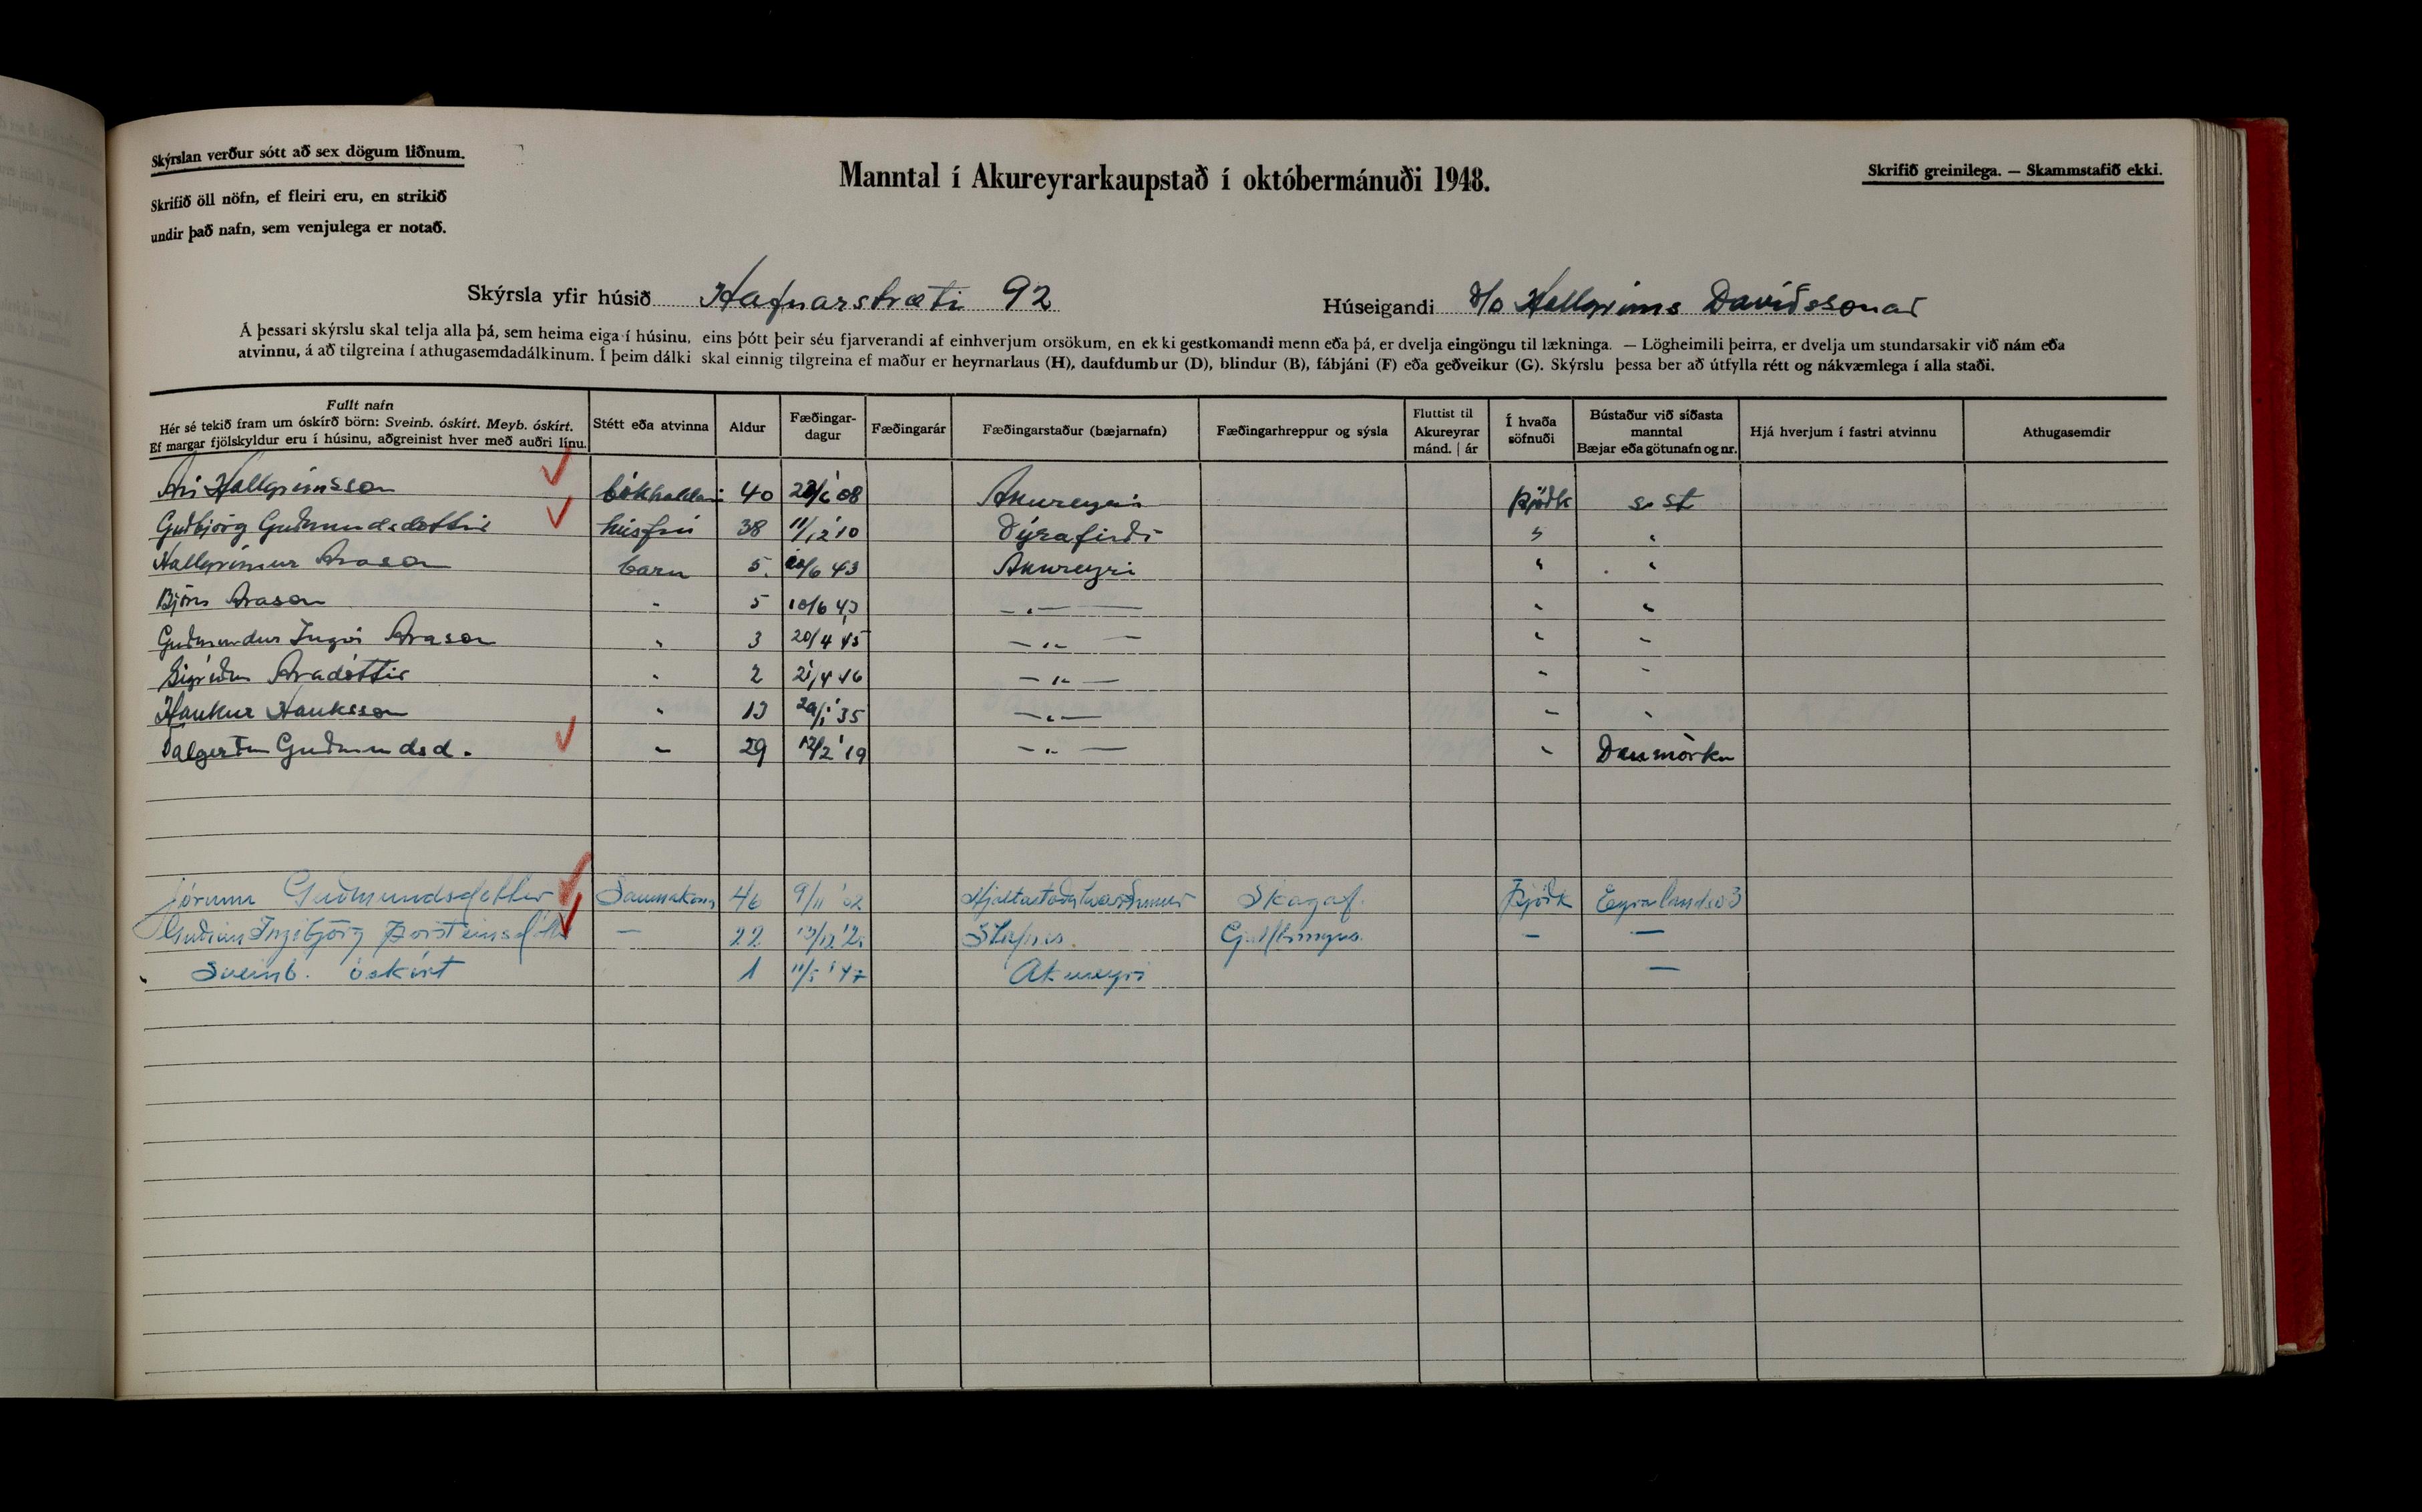 Skýrslan verður sótt að sex dögum liðnum.
Skrifið öll nöfn, ef fleiri eru, en strikið
undir það nafn, sem venjulega er notað.
Manntal í Akureyrarkaupstað í októbermánuði 1948.
Skrifið greinilega. — Skammstafið ekki.
Skýrsla yfir húsið Hafnarstræti 92
Húseigandi d/o Hallgríms Davíðssonar
Á þessari skýrslu skal telja alla þá, sem heima eiga í húsinu, eins þótt þeir séu fjarverandi af einhverjum orsökum, en ekki gestkomandi menn eða þá, er dvelja eingöngu til lækninga. — Lögheimili þeirra, er dvelja um stundarsakir við nám eða
atvinnu, á að tilgreina í athugasemdadálkinum. Í þeim dálki skal einnig tilgreina ef maður er heyrnarlaus (H), daufdumbur (D), blindur (B), fábjáni (F) eða geðveikur (G). Skýrslu þessa ber að útfylla rétt og nákvæmlega í alla staði.
Fullt nafn
Hér sé tekið fram um óskírð börn: Sveinb. óskírt. Meyb. óskírt.
Ef margar fjölskyldur eru í húsinu, aðgreinist hver með auðri línu.
Stétt eða atvinna
Aldur
Fæðingar-
dagur
Fæðingarár
Fæðingarstaður (bæjarnafn)
Fæðingarhreppur og sýsla
Fluttist til
Akureyrar
mánd. | ár
Í hvaða
söfnuði
Bústaður við síðasta
manntal
Bæjar eða götunafn og nr.
Hjá hverjum í fastri atvinnu
Athugasemdir
Ari Hallgrímsson bókhaldari 40 /6 '08 Akureyri Þjóðk s. st
Guðbjörg Guðmundsdóttir húsfrú 38 11/12 '10 Dýrafirði " "
Hallgrímur Arason barn 5 /6 43 Akureyri " "
Björn Arason " 5 10/6 43 — " — " "
Guðmundur Ingvi Arason " 3 20/4 45 — " — " "
Sigríður Aradóttir " 2 21/4 46 — " — " "
Haukur Hauksson " 13 29/1 '35 — " — " "
Valgerður Guðmundsd. " 29 12/2 '19 — " — " Danmörku
Jórunn Guðmundsdóttir Saumakona 46 9/11 '02 Skagaf. Þjóðk Eyrarlandsv 3
Guðrún Ingibjörg Þorsteinsdóttir — 22 Stafnes — —
Sveinb. óskírt 1 11/5 '47 Akureyri —